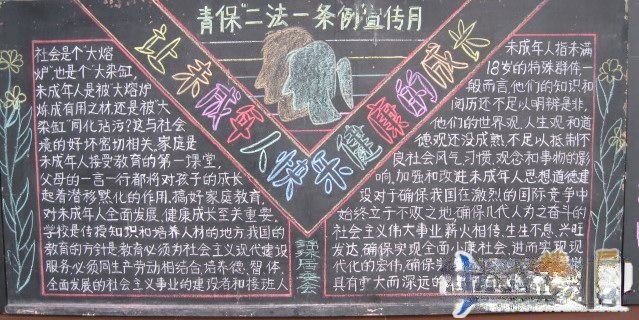 青保"二法一条例宣传月
让未成年人快乐健康的成长
社会是个"大熔
炉"也是个"大染缸,
未成年人是被"大熔炉
炼成有用之材还是被"大
染缸"同化沾污?这与社会
境的好坏密切相关.家庭是
未成年人接受教育的第一课堂,
父母的一言一行都将对孩子的成长
起着潜移默化的作用.搞好家庭教育,
对未成年人全面发展、健康成长至关重要.
学校是传授知识和培养人材的地方我国的
教育的方针是教育必须为社会主义现代建设
服务,必须同生产劳动相结合,培养德、智、体、
全面发展的社会主义事业的建设者和接班人
未成年人指未满
18岁的特殊群体,一
般而言他们的知识和
阅历还不足以明辨是非,
他们的世界观,人生观和道
德观还没成熟,不足以抵制不
良社会风气、习惯,观念和事物的影
响,加强和改进未成年人思想道德建
设对于确保我国在激烈的国际竞争中
始终立于不败之地,确保几代人为之奋斗的
社会主义伟大事业薪火相传,生生不息,兴旺
发达,确保实现全面小康社会,进而实现现
代化的宏伟,确保
具有扩大而深远的
居委会